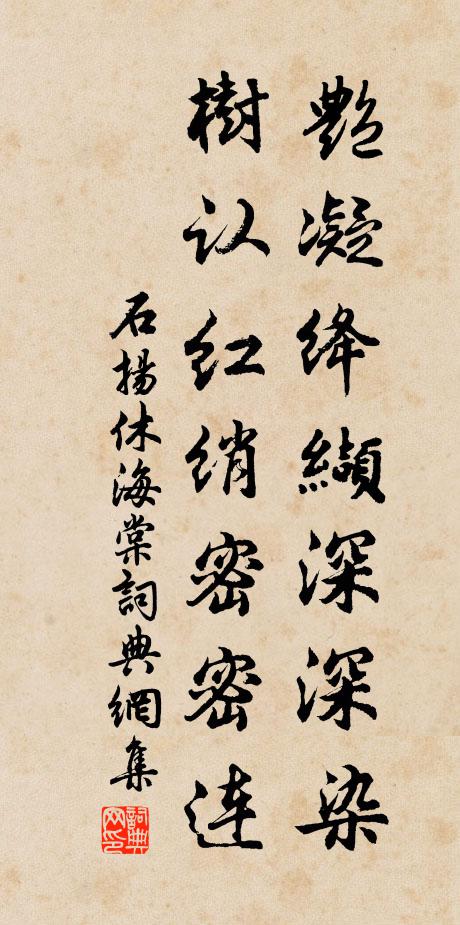 艷凝绛纈深深染
樹认红绡密密連
石揚休海棠詞典網集
詞典网印